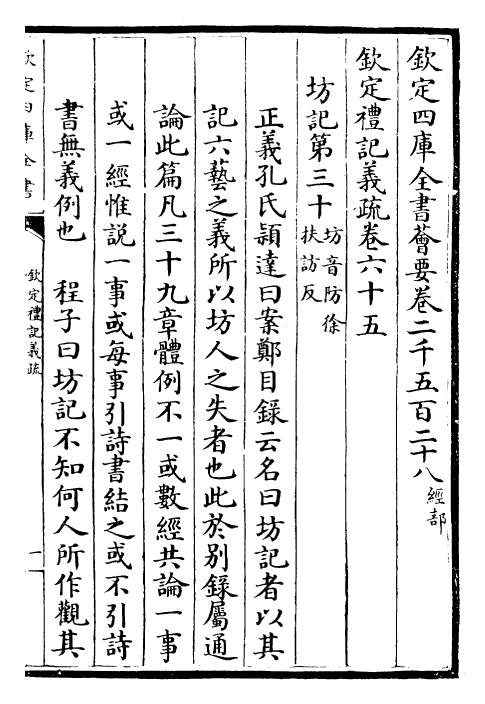 欽定四庫全書薈要卷二千五百二十八經部
欽定禮記義疏卷六十五
坊記第三十坊音防徐扶訪反
正義孔氏穎達曰案鄭目錄云名曰坊記者以其
記六藝之義所以坊人之失者也此於別錄屬通
論此篇凡三十九章體例不一或數經共論一事
或一經惟説一事或每事引詩書結之或不引詩
書無義例也　程子曰坊記不知何人所作觀其
欽定四庫全書
欽定禮記義疏
一